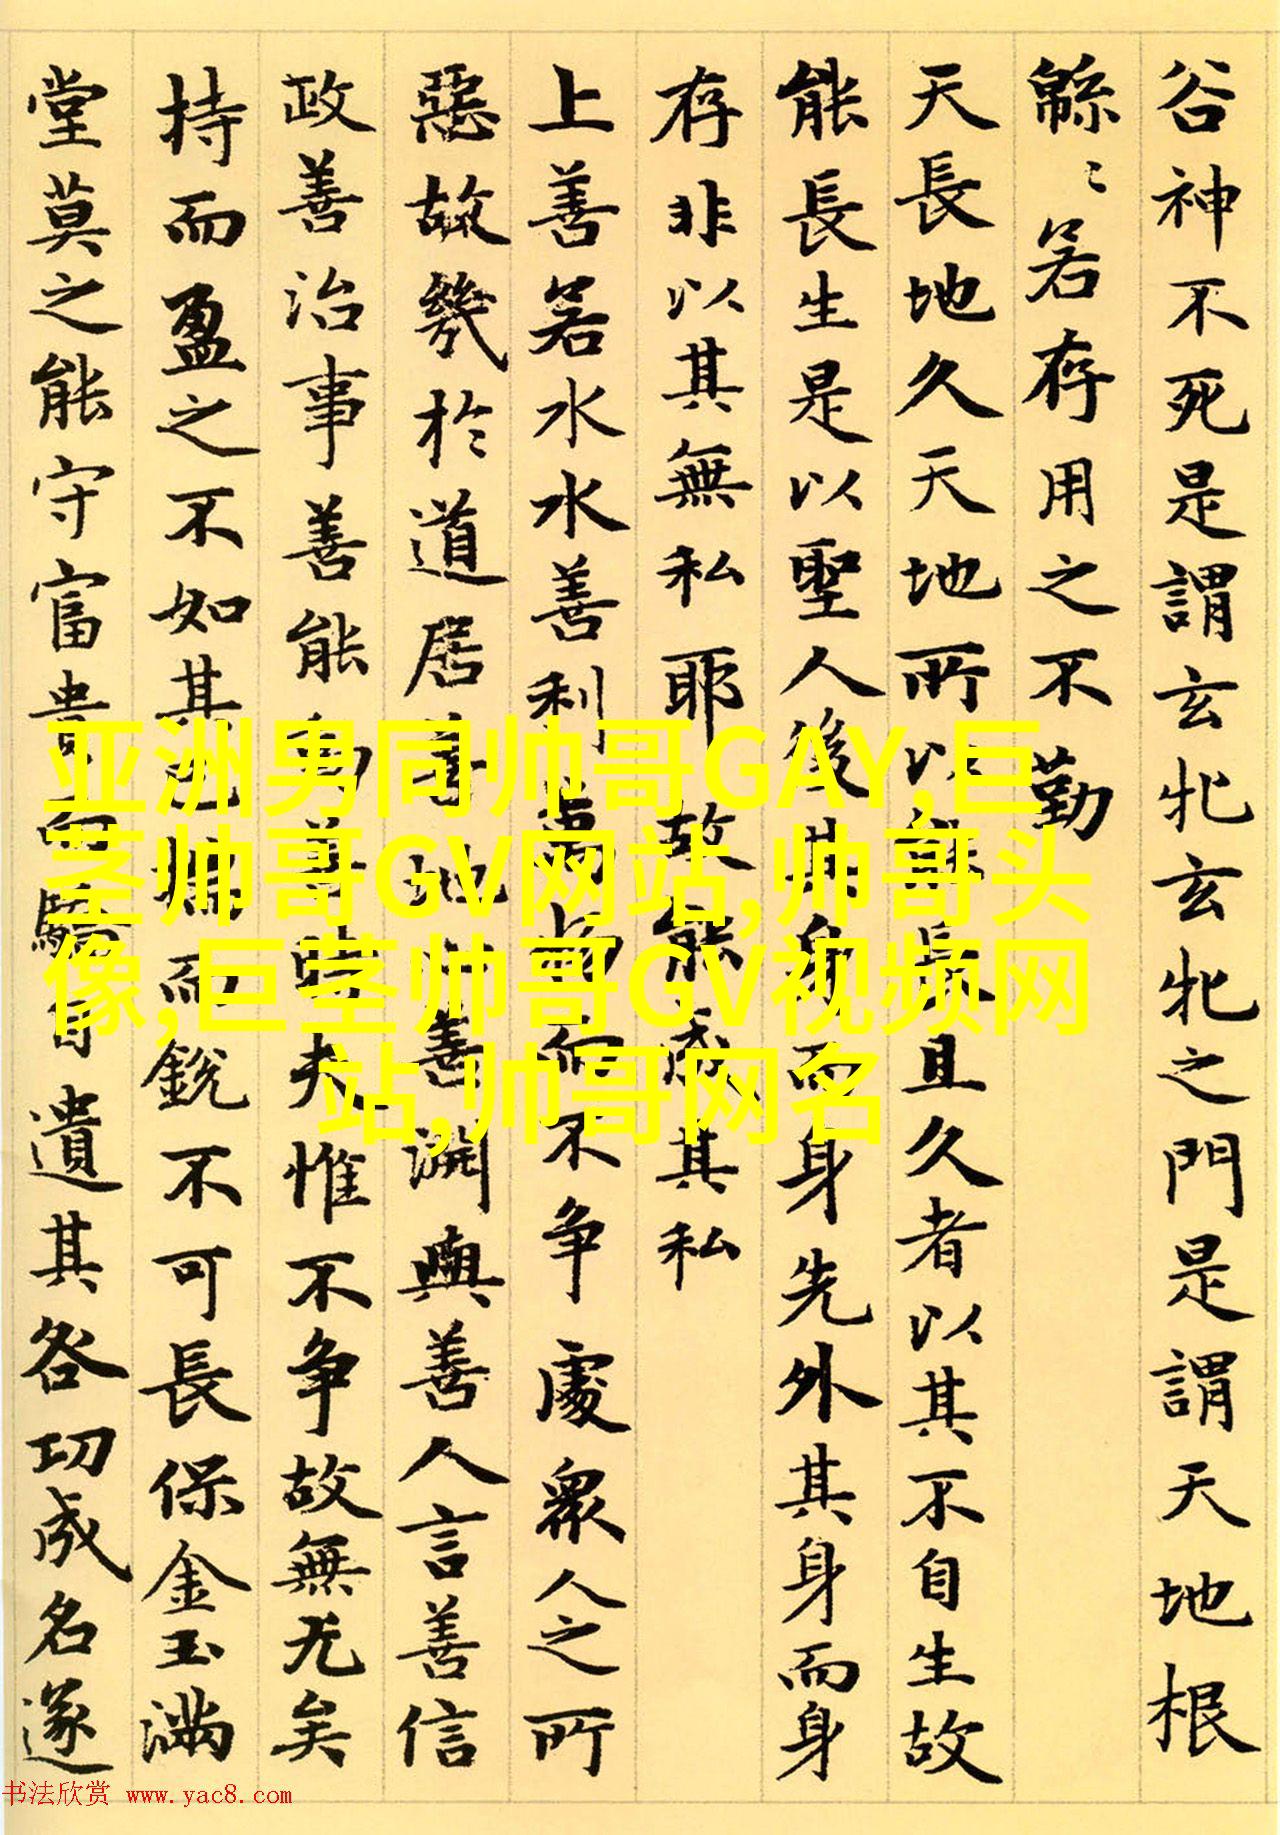 谷神不死是謂玄牝玄牝之門是謂天地根
緜〻若存用之不勤
天長地久天地所以能長且久者以其不自生故
能長生是以聖人後其身而身先外其身而身
存非以其無私耶故能成其私
上善若水水善利萬物而不争處衆人之所
惡故幾於道居善地心善淵與善人言善信
政善治事善能動善時夫惟不争故無尤矣
持而盈之不如其已揣而銳不可長保金玉滿
堂莫之能守富貴而驕自遺其咎功成名遂
亚洲男同帅哥GAY,巨
茎帅哥GV网站,帅哥头
像,巨茎帅哥GV视频网
站,帅哥网名
书法欣赏 www.yac8.com